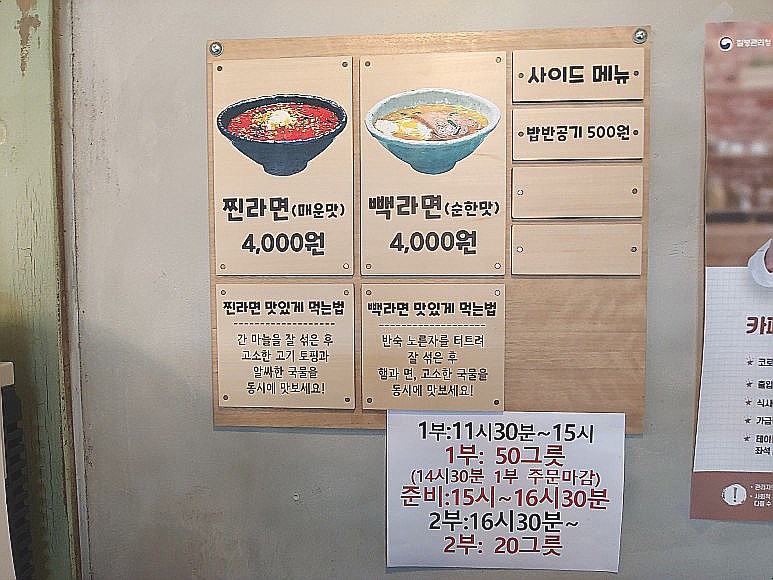 찐라면(매운맛)
4,000원
빽라면(순한맛)
4,000원
사이드 메뉴
밥반공기 500원
찐라면 맛있게 먹는법
간 마늘을 잘 섞은 후
고소한 고기 토핑과
알싸한 국물을
동시에 맛보세요!
빽라면 맛있게 먹는법
반숙 노른자를 터트려
잘 섞은 후
햄과 면, 고소한 국물을
동시에 맛보세요!
1부:11시30분~15시
1부: 50그릇
(14시30분 1부 주문마감)
준비:15시~16시30분
2부:16시30분~
2부: 20그릇
질병관리청
카페
★ 코로
★ 출입
★ 식사
★ 가급
★ 테이
좌석
• 관리자
• 사회적
다를 수